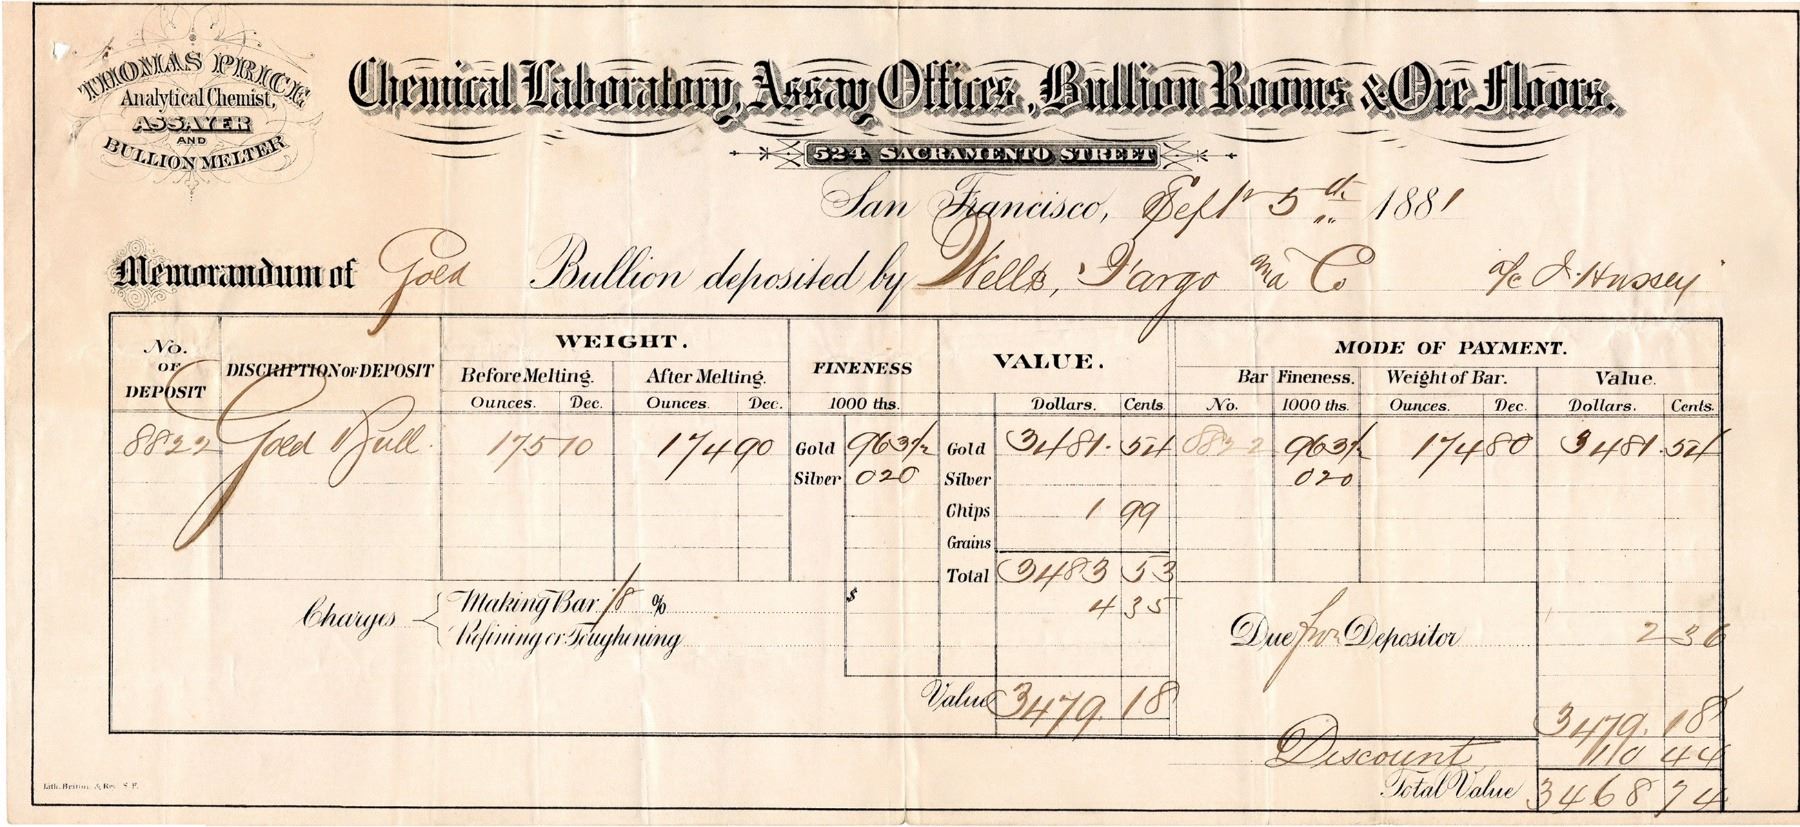 THOMAS PRICE
Analytical Chemist,
ASSAYER
AND
BULLION MELTER
Chemical Laboratory, Assay Offices, Bullion Rooms & Ore Floors.
524 SACRAMENTO STREET
San Francisco, Sept 5th 1881
Memorandum of Gold Bullion deposited by Wells, Fargo and Co a/c J. Hussey
No. OF DEPOSIT DISCRIPTION OF DEPOSIT WEIGHT. FINENESS VALUE. MODE OF PAYMENT.
Before Melting. After Melting. Bar Fineness. Weight of Bar. Value.
Ounces. Dec. Ounces. Dec. 1000 ths. Dollars. Cents. No. 1000 ths. Ounces. Dec. Dollars. Cents.
8822 Gold Bull. 175 10 174 90 Gold 963 1/2 Gold 3481. 54 8822 963 1/2 174 80 3481. 54
Silver 020 Silver 020
Chips 1 99
Grains
Total 3483 53
Charges Making Bar 1/8 % $ 4 35
Refining or Toughening Due from Depositor 2 36
Value 3479. 18 3479. 18
Discount 10 44
Total Value 3468 74
Lith. Britton & Rey S.F.